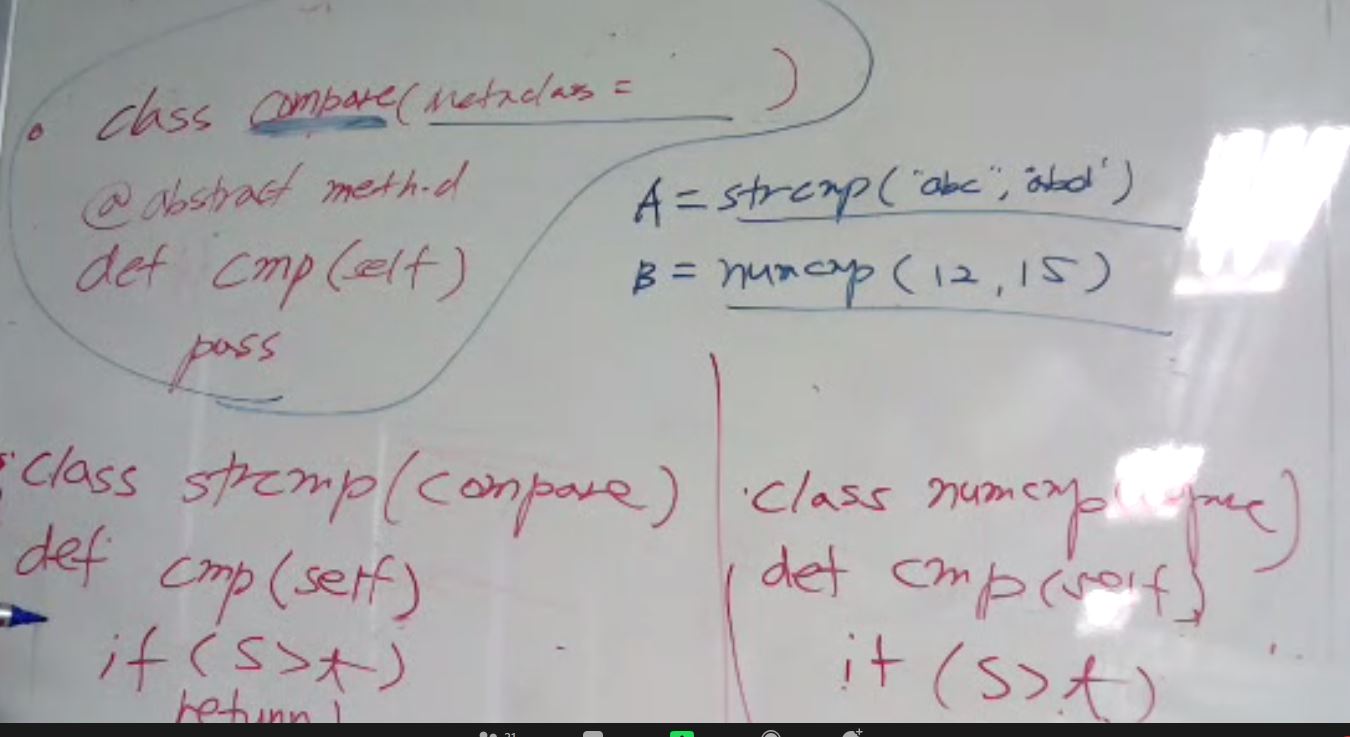 class compare(metaclass = )
@abstract method
def cmp(self)
pass
A = strcmp("abc", "abd")
B = numcmp(12, 15)
class strcmp(compare)
def cmp(self)
if (s>t)
return 1
class numcmp( )
def cmp(self)
if (s>t)
21